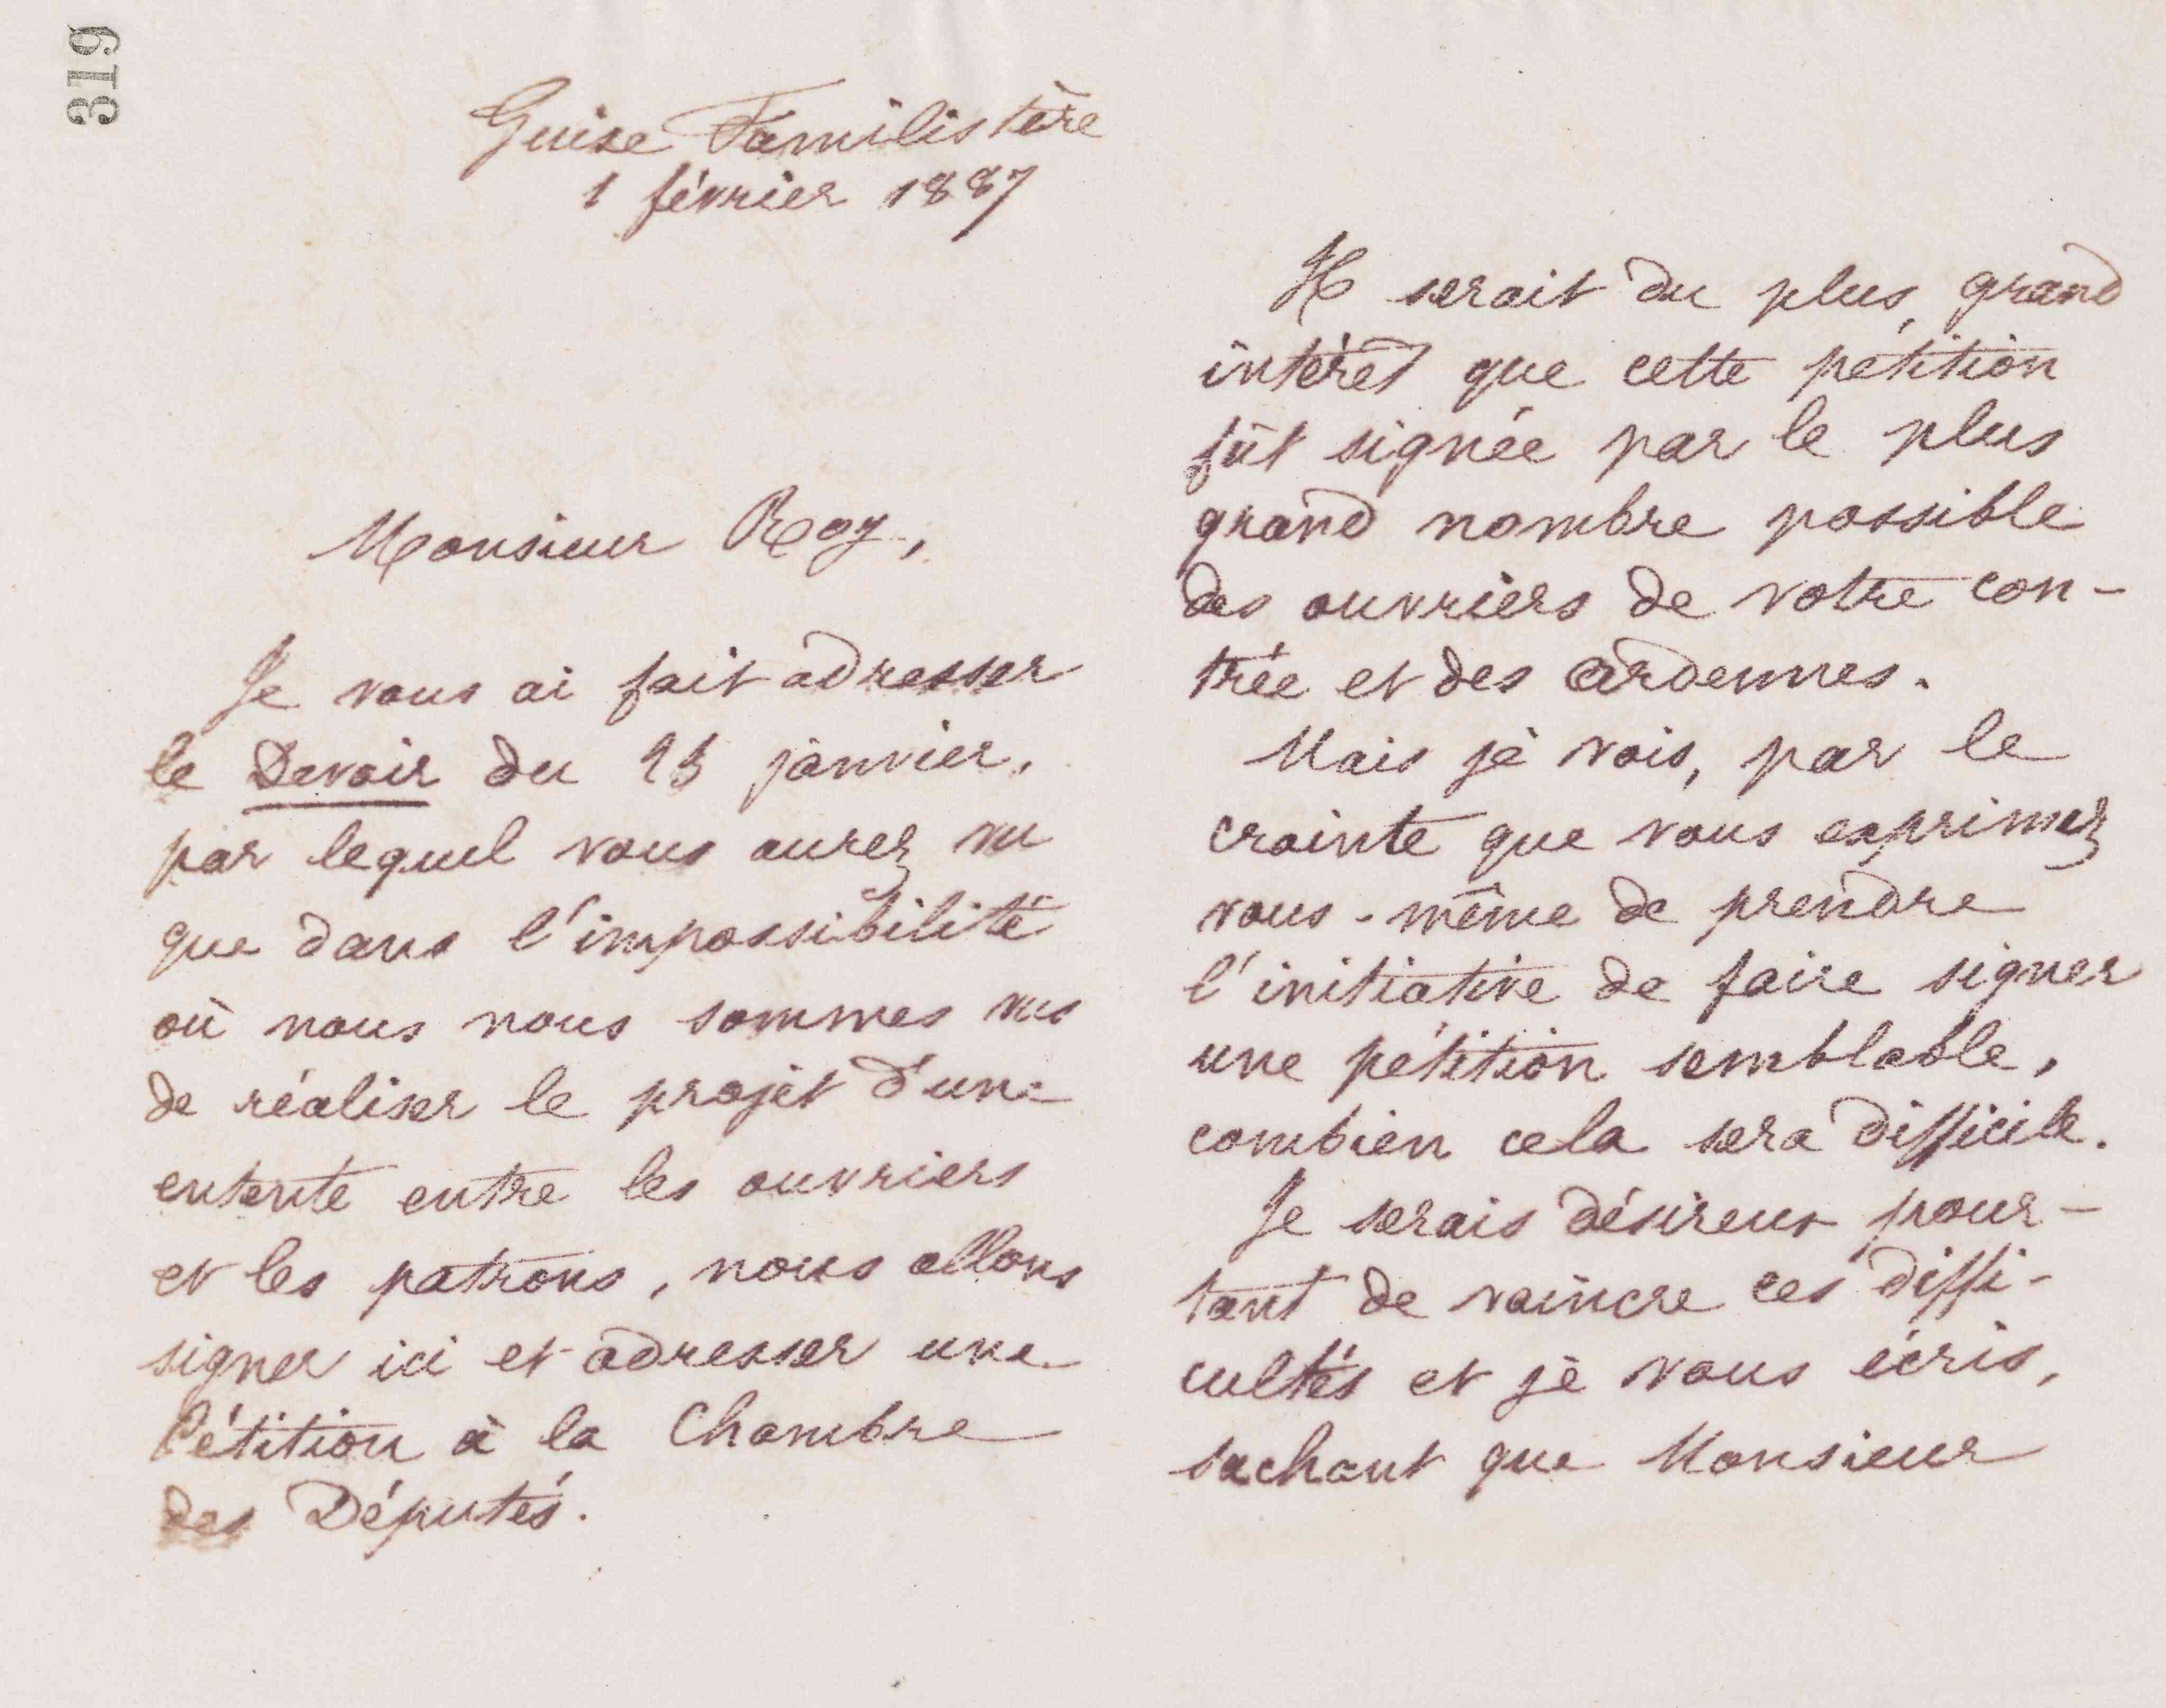 319
Guise Familistère
1 février 1887
Monsieur Roy,
Je vous ai fait adresser
le Devoir du 23 janvier,
par lequel vous aurez vu
que dans l'impossibilité
où nous nous sommes vus
de réaliser le projet d'une
entente entre les ouvriers
et les patrons, nous allons
signer ici et adresser une
Pétition à la Chambre
des Députés.
Il serait du plus grand
intérêt que cette pétition
fût signée par le plus
grand nombre possible
des ouvriers de votre con-
trée et des Ardennes.
Mais je vois, par le
crainte que vous exprimez
vous-même de prendre
l'initiative de faire signer
une pétition semblable,
combien cela sera difficile.
Je serais désireux pour-
tant de vaincre ces diffi-
cultés et je vous écris,
sachant que Monsieur